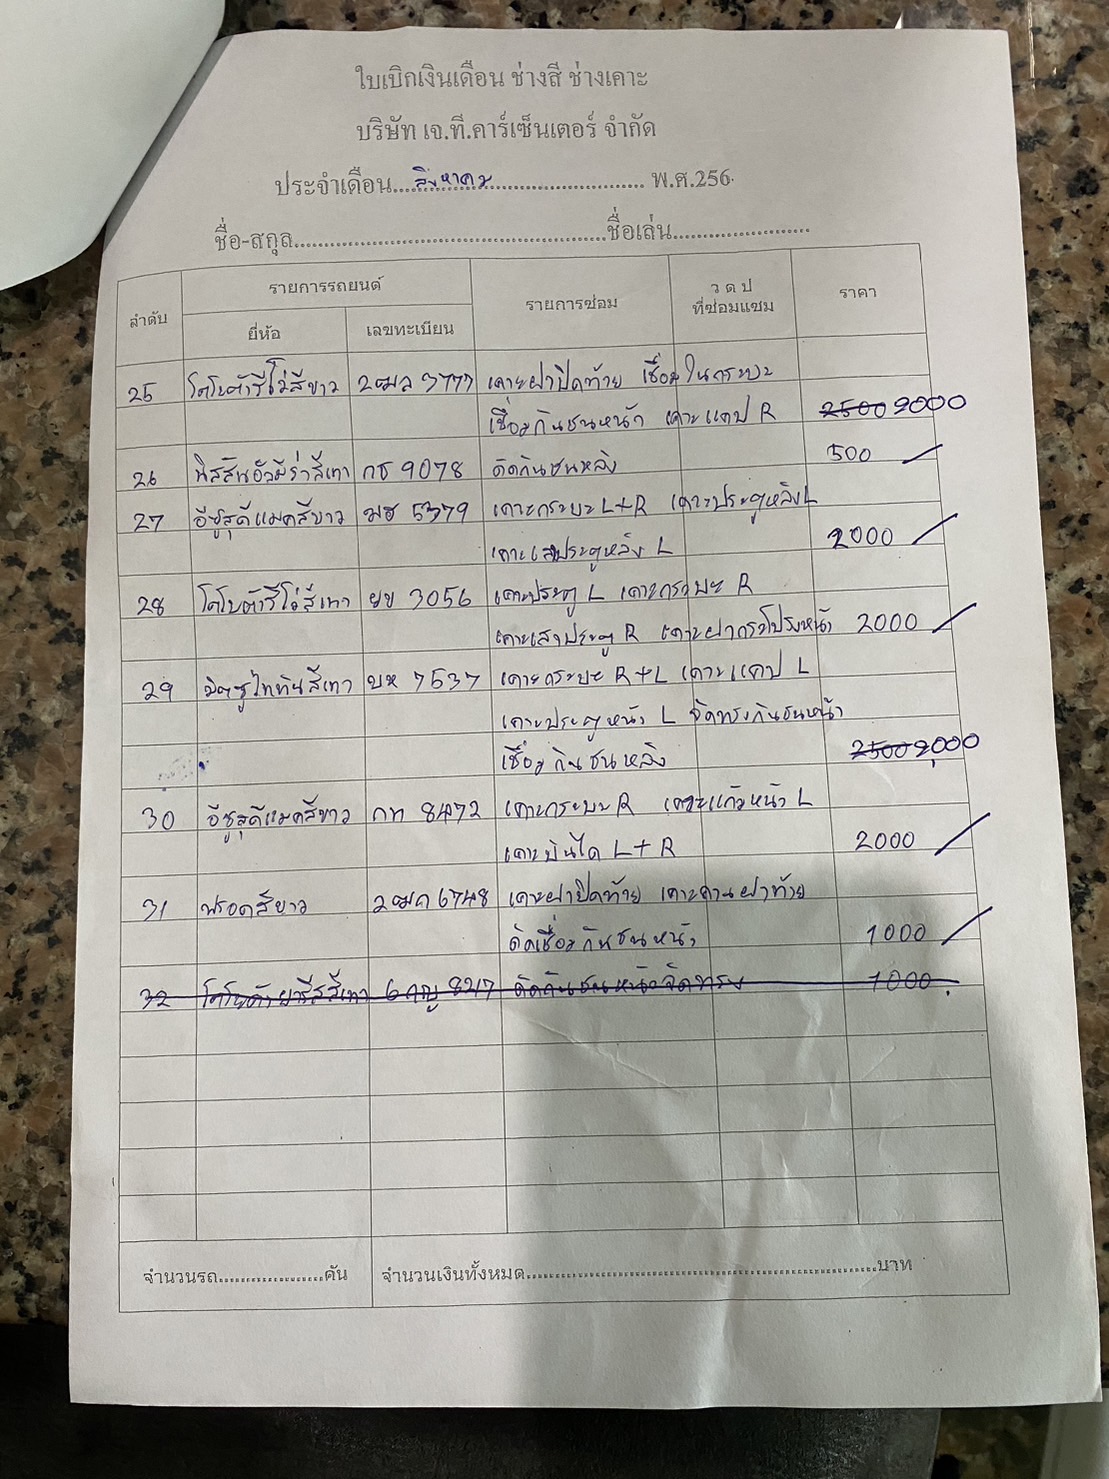 ใบเบิกเงินเดือน ช่างสี ช่างเคาะ
บริษัท เจ.ที.คาร์เซ็นเตอร์ จำกัด
ประจำเดือน.....สิงหาคม.............................. พ.ศ.256
ชื่อ-สกุล.....................................................ชื่อเล่น.......................
ลำดับ รายการรถยนต์ รายการซ่อม ว ด ป ที่ซ่อมแซม ราคา
ยี่ห้อ เลขทะเบียน
25 โตโยต้ารีโว่สีขาว 2ฒล 3777 เคาะฝาปิดท้าย เชื่อมในกระบะ
เชื่อมกันชนหน้า เคาะแคป R 2500 2000
26 นิสสันอัลมีร่าสีเทา กธ 9078 ดัดกันชนหลัง 500
27 อีซูสุดีแมคสีขาว มฮ 5379 เคาะกระบะ L+R เคาะประตูหลัง L
เคาะเสาประตูหลัง L 2000
28 โตโยต้ารีโว่สีเทา ยข 3056 เคาะประตู L เคาะกระบะ R
เคาะเสาประตู R เคาะฝากระโปรงหน้า 2000
29 มิตซูไททันสีเทา บห 7537 เคาะกระบะ R+L เคาะแคป L
เคาะประตูหน้า L จัดทรงกันชนหน้า
เชื่อมกันชนหลัง 2500 2,000
30 อีซูสุดีแมคสีขาว กท 8472 เคาะกระบะ R เคาะแก้มหน้า L
เคาะบันได L+R 2000
31 ฟรอดสีขาว 2ฒก 6748 เคาะฝาปิดท้าย เคาะคานฝาท้าย
ดัดเชื่อมกันชนหน้า 1000
32 โตโยต้ายารีสสีเทา 6กญ 8217 ดัดกันชนหน้าจัดทรง 1000
จำนวนรถ....................คัน จำนวนเงินทั้งหมด..................................................................บาท